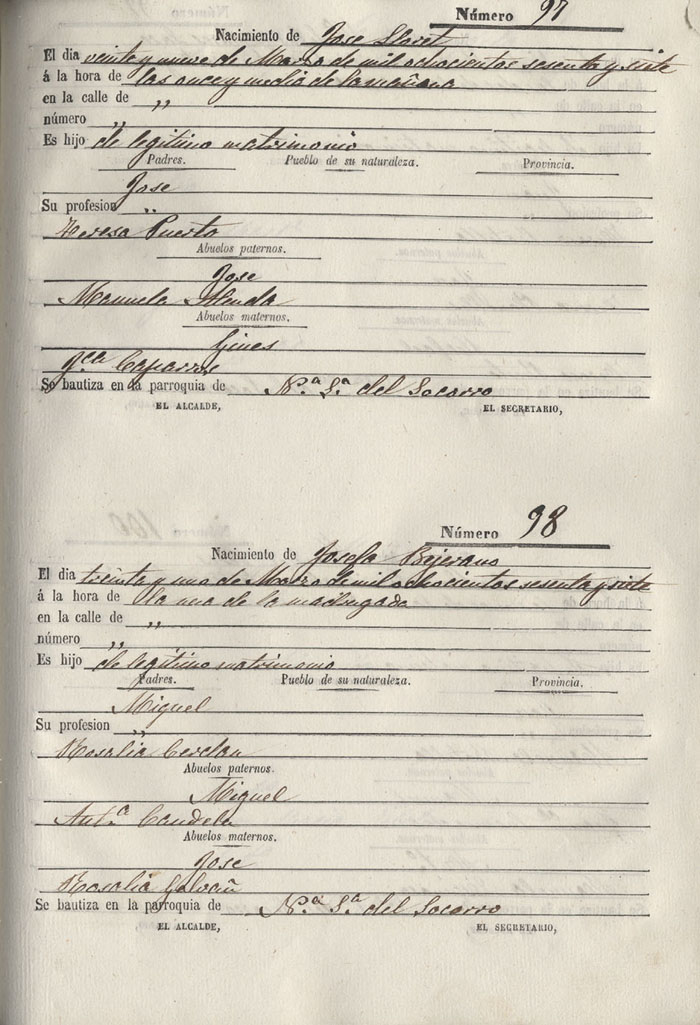 Número 97
Nacimiento de Jose Lloret
El dia veinte y nueve de Marzo de mil ochocientos sesenta y siete
á la hora de las once y media de la mañana
en la calle de „
número „
Es hijo de legitimo matrimonio
Padres. Pueblo de su naturaleza. Provincia.
Jose
Su profesion „
Teresa Puerto
Abuelos paternos.
Jose
Manuela Alenda
Abuelos maternos.
Gines
Caparros
Se bautiza en la parroquia de N.ª S.ª del Socorro
EL ALCALDE, EL SECRETARIO,
Número 98
Nacimiento de Josefa Bejerano
El dia treinta y uno de Marzo de mil ochocientos sesenta y siete
á la hora de la una de la madrugada
en la calle de „
número „
Es hijo de legitimo matrimonio
Padres. Pueblo de su naturaleza. Provincia.
Miguel
Su profesion „
Rosalia Cerdan
Abuelos paternos.
Miguel
Ant.ª Candela
Abuelos maternos.
Jose
Rosalia Galvañ
Se bautiza en la parroquia de N.ª S.ª del Socorro
EL ALCALDE, EL SECRETARIO,